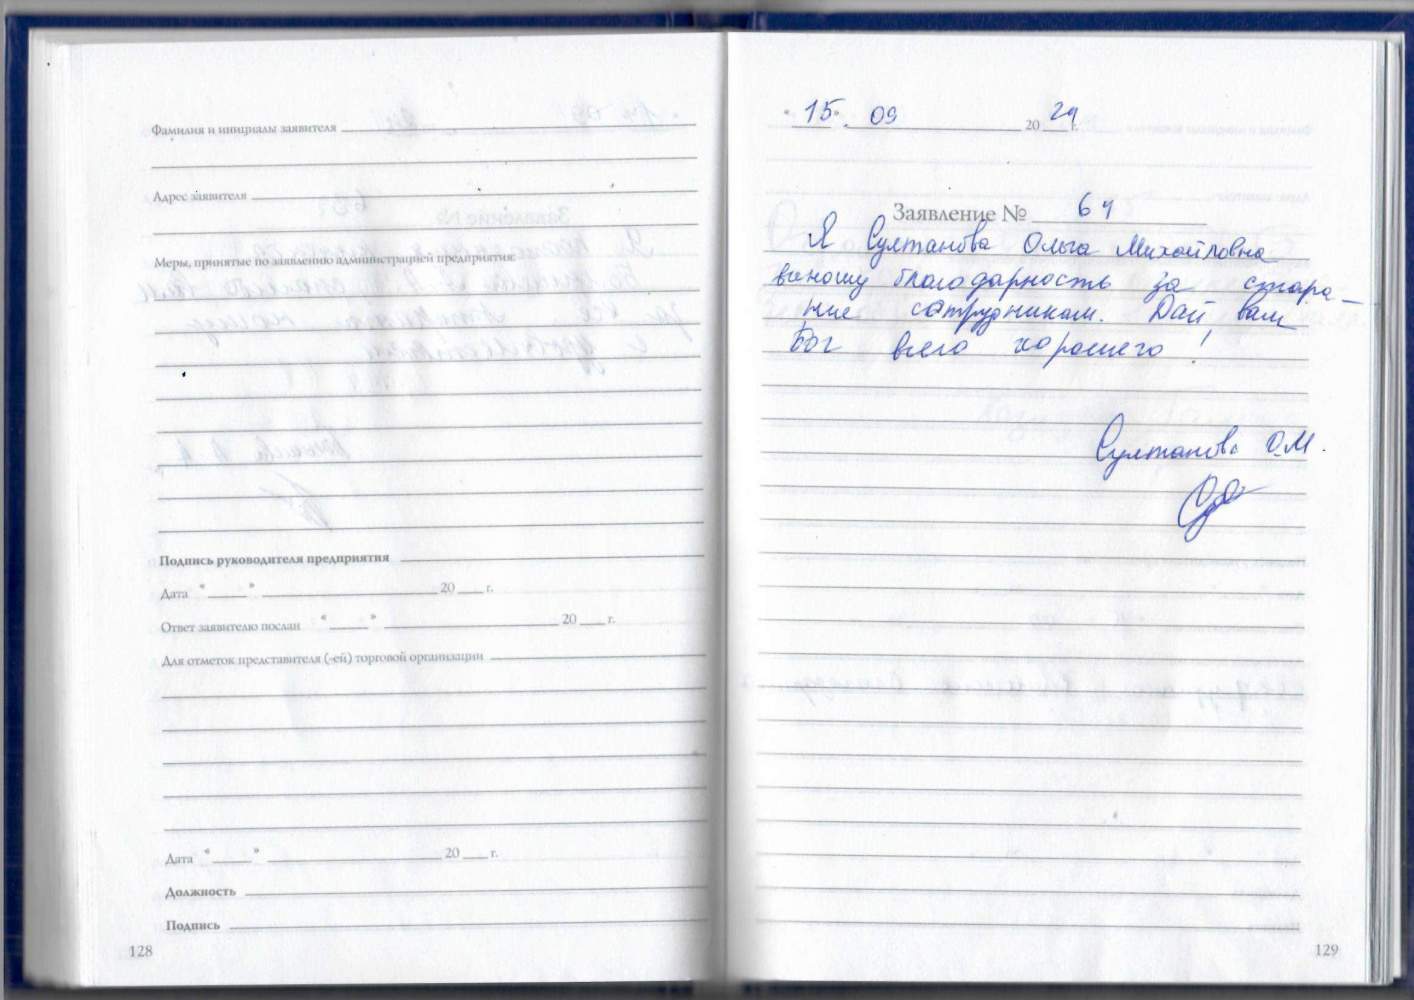 Фамилия и инициалы заявителя
Адрес заявителя
Меры, принятые по заявлению администрацией предприятия:
Подпись руководителя предприятия
Дата " " 20 г.
Ответ заявителю послан " " 20 г.
Для отметок представителя (-ей) торговой организации
Дата " " 20 г.
Должность
Подпись
128
"15" 09 2024 г.
Заявление № 64
Я Султанова Ольга Михайловна
выношу благодарность за стара-
ние сотрудникам. Дай вам
Бог всего хорошего!
Султанова О.М.
129